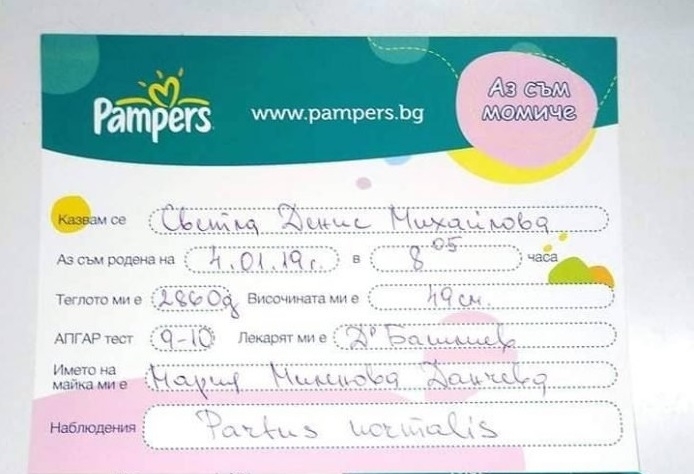 Pampers
www.pampers.bg
Аз съм
момиче
Казвам се Светла Денис Михайлова
Аз съм родена на 4.01.19г. в 8 05 часа
Теглото ми е 2860g Височината ми е 49см.
АПГАР тест 9-10 Лекарят ми е Др Башлиев
Името на
майка ми е Мария Миленова Данчева
Наблюдения Partus normalis